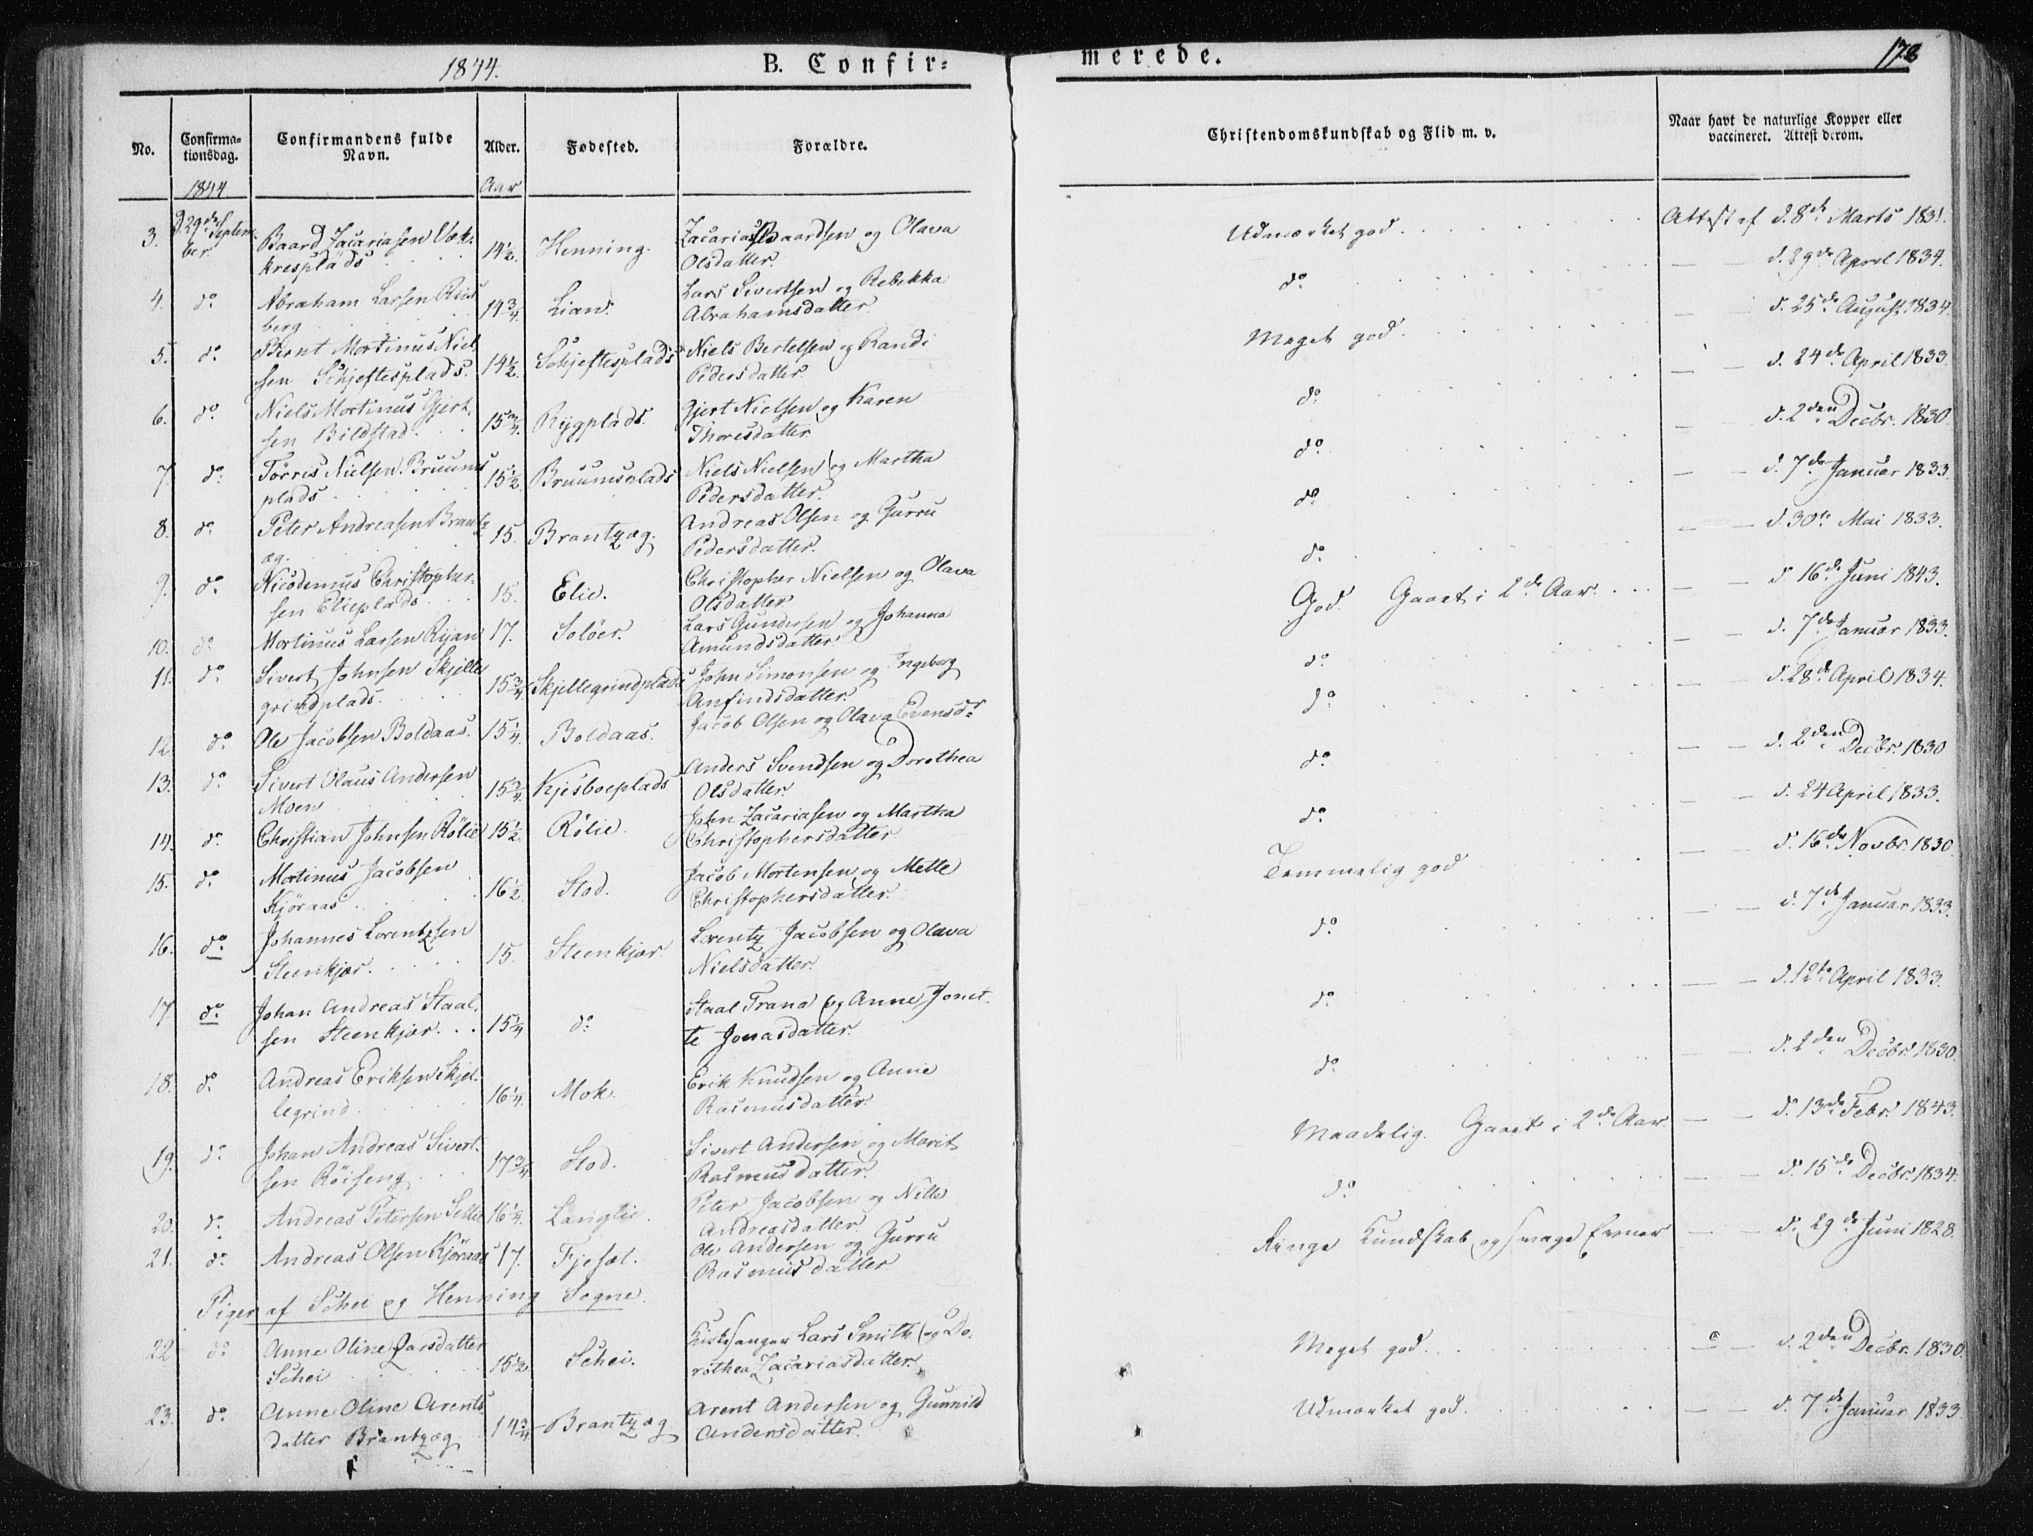 1844. B. Confir= merede. 178
No. Confirma-tionsdag. Confirmandens fulde Navn. Alder. Fødested. Forældre. Christendomskundskab og Flid m. v. Naar havt de naturlige Kopper eller vaccineret. Attest derom.
1844 Aar
3. d. 29de Septem-ber. Baard Zacariasen Vok-kresplads 14½. Henning. Zacarias Baardsen og Olava Olsdatter. Udmærket god. Attest af d. 8de Marts 1831.
4. do. Abraham Larsen Riis-berg 14¾. Lian. Lars Sivertsen og Rebekka Abrahamsdatter. do. — — d. 29de April 1834.
5. do. Bernt Mortinus Niel-sen Schjeftesplads. 14½. Schjeftesplads Niels Bertelsen og Randi Pedersdatter. Meget god d. 25de August 1834.
6. do. Niels Mortinus Gjert-sen Bildstad. 15¾. Rygplads. Gjert Nielsen og Karen Thoresdatter. do. — — d. 24de April 1833.
7. do. Tørris Nielsen Bruums-plads 15½. Bruumsplads Niels Nielsen og Martha Pedersdatter. do. — — d. 2den Decbr. 1830.
8. do. Peter Andreasen Brantz-æg. 15. Brantzæg. Andreas Olsen og Gurru Pedersdatter. do. — — d. 7de Januar 1833.
9. do. Nicodemus Christopher-sen Elieplads. 15. Elie. Christopher Nielsen og Olava Olsdatter. do. — — d. 30te Mai 1833.
10. do. Mortinus Larsen Ryan 17. Soløer. Lars Gundersen og Johanna Amundsdatter. God. Gaaet i 2de Aar. — — d. 16de Juni 1843.
11. do. Sivert Johnsen Skjelle-grindplads. 15¾. Skjellegrindplads John Simonsen og Ingeborg Anfindsdatter. do. — — d. 7de Januar 1833.
12. do. Ole Jacobsen Boldaas. 15¼. Boldaas. Jacob Olsen og Olava Evensdr. do. — — d. 28de April 1834.
13. do. Sivert Olaus Andersen Moen 15¾. Kjesboeplads Anders Svendsen og Dorothea Olsdatter. do. — — d. 2den Decbr. 1830
14. do. Christian Johnsen Rølie 15½. Rølie. John Zacariasen og Martha Christophersdatter. do. — — d. 24 April 1833.
15. do. Mortinus Jacobsen Kjøraas 16½. Stod. Jacob Mortensen og Mette Christophersdatter. Temmelig god — — d. 16de Novbr. 1830.
16. do. Johannes Lorentzsen Steenkjær. 15. Steenkjær. Lorentz Jacobsen og Olava Nielsdatter. do. — — d. 7de Januar 1833.
17. do. Johan Andreas Staal-sen Steenkjær. 15¼ do. Staal Trana og Anne Jonet-te Jonasdatter. do. — — d. 12te April 1833.
18. do. Andreas Eriksen Skjel-legrind 16¼. Mok. Erik Knudsen og Anne Rasmusdatter. do. — — d. 2den Decbr. 1830.
19. do. Johan Andreas Sivert-sen Røiseng. 17¾ Stod. Sivert Andersen og Marit Rasmusdatter. Maadelig. Gaaet i 2de Aar. — — d. 13de Febr. 1843.
20. do. Andreas Petersen Selli 16¼. Langlie. Peter Jacobsen og Nille Andreasdatter do. — — d. 15de Decbr. 1834.
21. do. Andreas Olsen Kjøraas 17. Fjesæl. Ole Andersen og Gurru Rasmusdatter Ringe Kundskab og svage Evner — — d. 29de Juni 1828.
Piger af Schei og Henning Sogne.
22 do. Anne Oline Larsdatter Schei 15½. Schei. Kirkesanger Lars Smith og Do-rothea Zacariasdatter. Meget god — — d. 2den Decbr. 1830.
23. do. Anne Oline Arents-datter Brantzæg 14¾ Brantzæg Arent Andersen og Gunnild Andersdatter. Udmærket god. d. 7de Januar 1833.